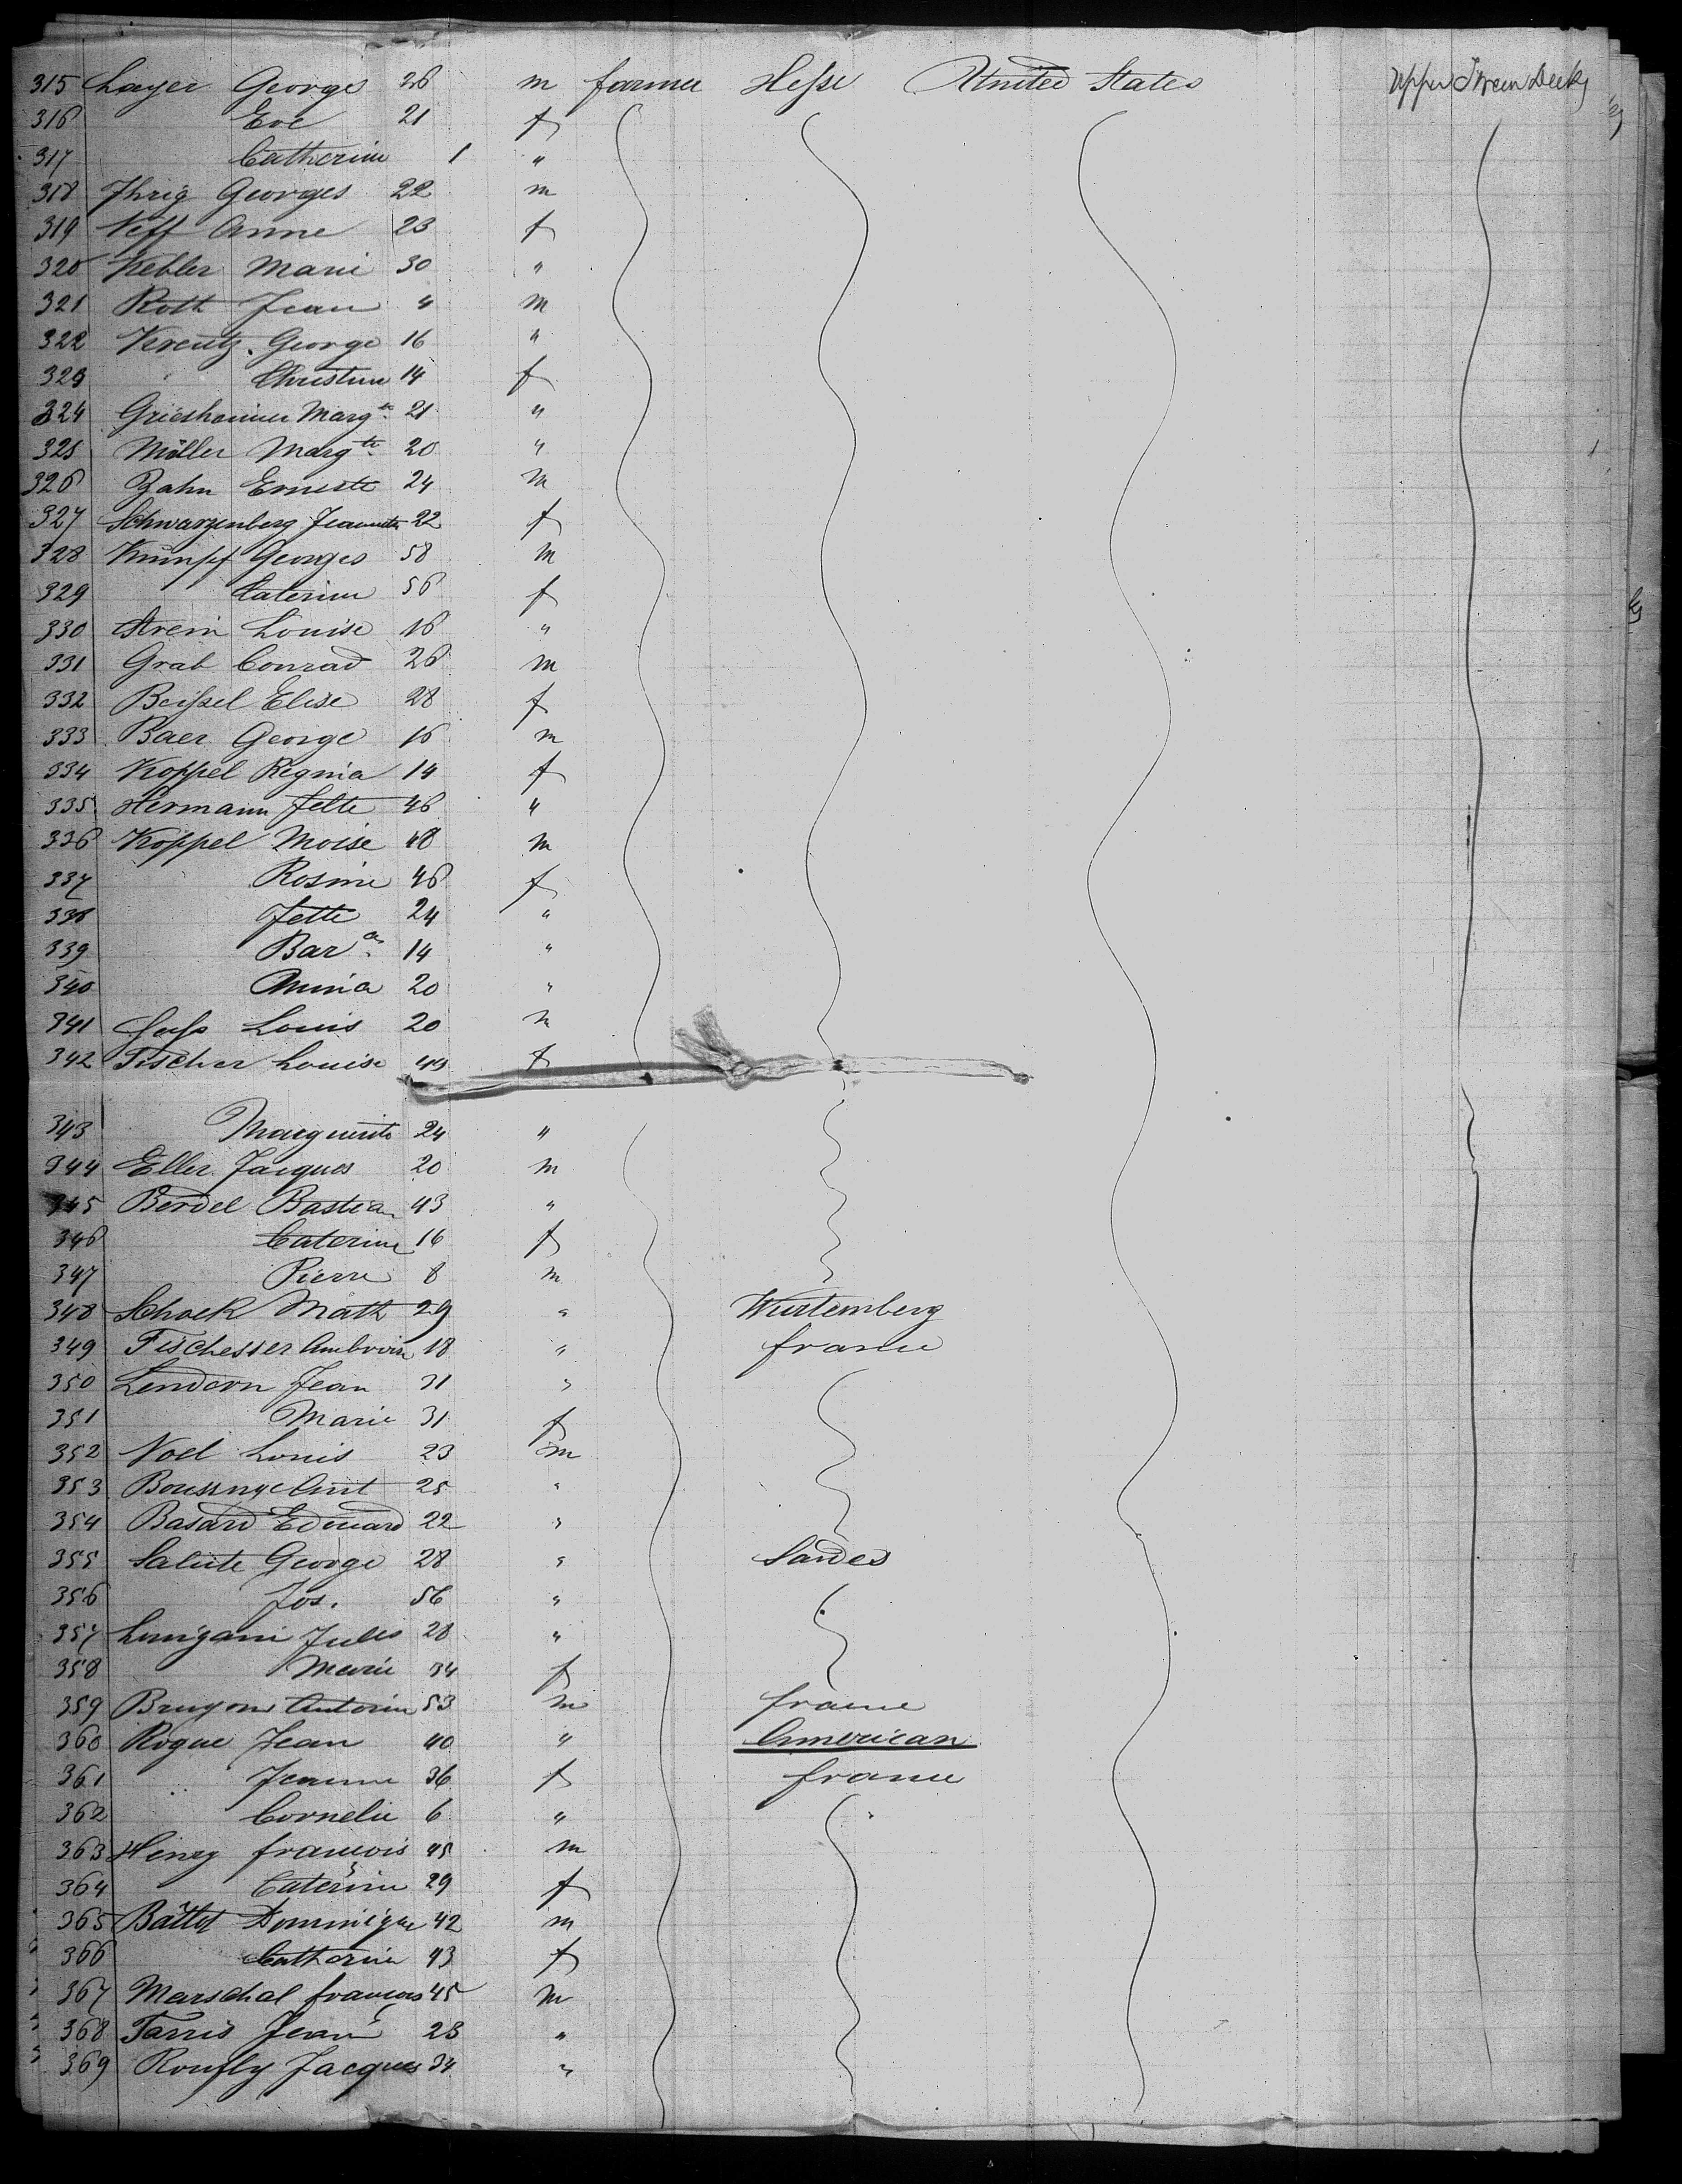 315 Layer George 26 m farmer Hesse United States Upper Tween Decks
316 Eve 21 f
317 Catherine 1 "
318 Jhrig Georges 22 m
319 Neff Anne 23 f
320 Kebler Marie 30 "
321 Roth Jean " m
322 Kreutz George 16 "
323 Christine 14 f
324 Griesheimer Margte 21 "
325 Möller Margte 20 "
326 Zahn Erneste 24 m
327 Schwarzenberg Jeannette 22 f
328 Krumpf Georges 58 m
329 Caterine 56 f
330 Strein Louise 16 "
331 Grab Conrad 26 m
332 Beissel Elise 28 f
333 Baer George 16 m
334 Koppel Regina 14 f
335 Hermann Jette 46 "
336 Koppel Moise 48 m
337 Rosine 46 f
338 Jette 24 "
339 Bara 14 "
340 Mina 20 "
341 Louis 20 m
342 Fischer Louise 49 f
343 Marguerite 24 "
344 Eller Jacques 20 m
345 Berdel Bastian 43 "
346 Caterine 16 f
347 Pierre 8 m
348 Schock Math 29 " Wurtemberg
349 Fischesser Ambroise 18 " france
350 Lendorn Jean 31 "
351 Marie 31 f
352 Noel Louis 23 m
353 Ant 25 "
354 Basard Edouard 22 "
355 Salute George 28 " Sardes
356 Jos. 56 "
357 Lunigani Jules 28 "
358 Marie 34 f
359 Brugon Antoine 53 m france
360 Rogue Jean 40 " American
361 Jeanne 36 f france
362 Cornelie 6 "
363 Henry francois 45 m
364 Caterine 29 f
365 Battot Dominique 42 m
366 Catherine 43 f
367 Marschal francois 45 m
368 Tarris Jean 28 "
369 Roufly Jacques 34 "